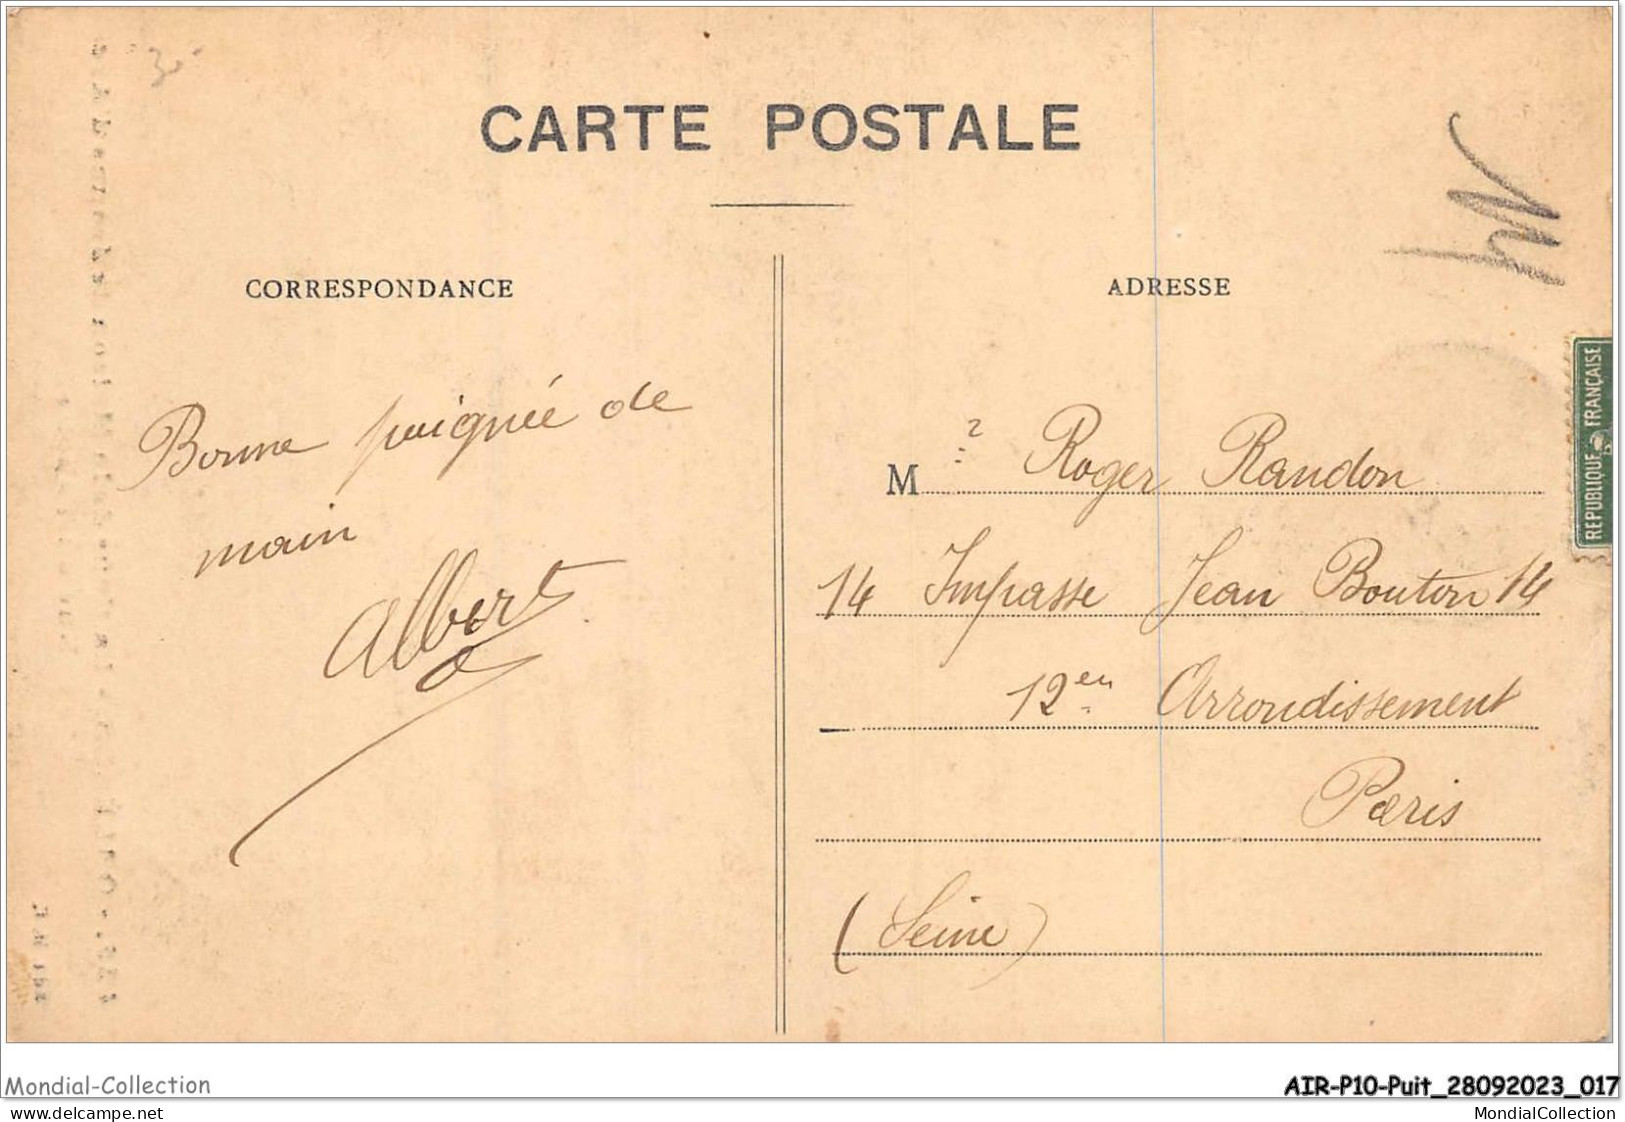 CARTE POSTALE
CORRESPONDANCE
ADRESSE
Bonne poignée de
main
Albert
M r Roger Randon
14 Impasse Jean Bouton 14
12en Arrondissement
Paris
(Seine)
REPUBLIQUE FRANÇAISE
Mondial-Collection
AIR-P10-Puit_28092023_017
delcampe.net
MondialCollection